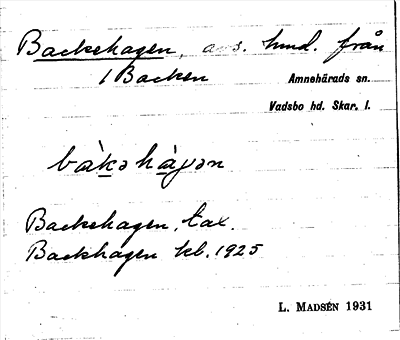 Backehagen, avs. hmd. från
1 Backen
Amnehärads sn.
Vadsbo hd. Skar. l.
bàkəhàgən
Backehagen, tax.
Backhagen kb. 1925
L. MADSÉN 1931